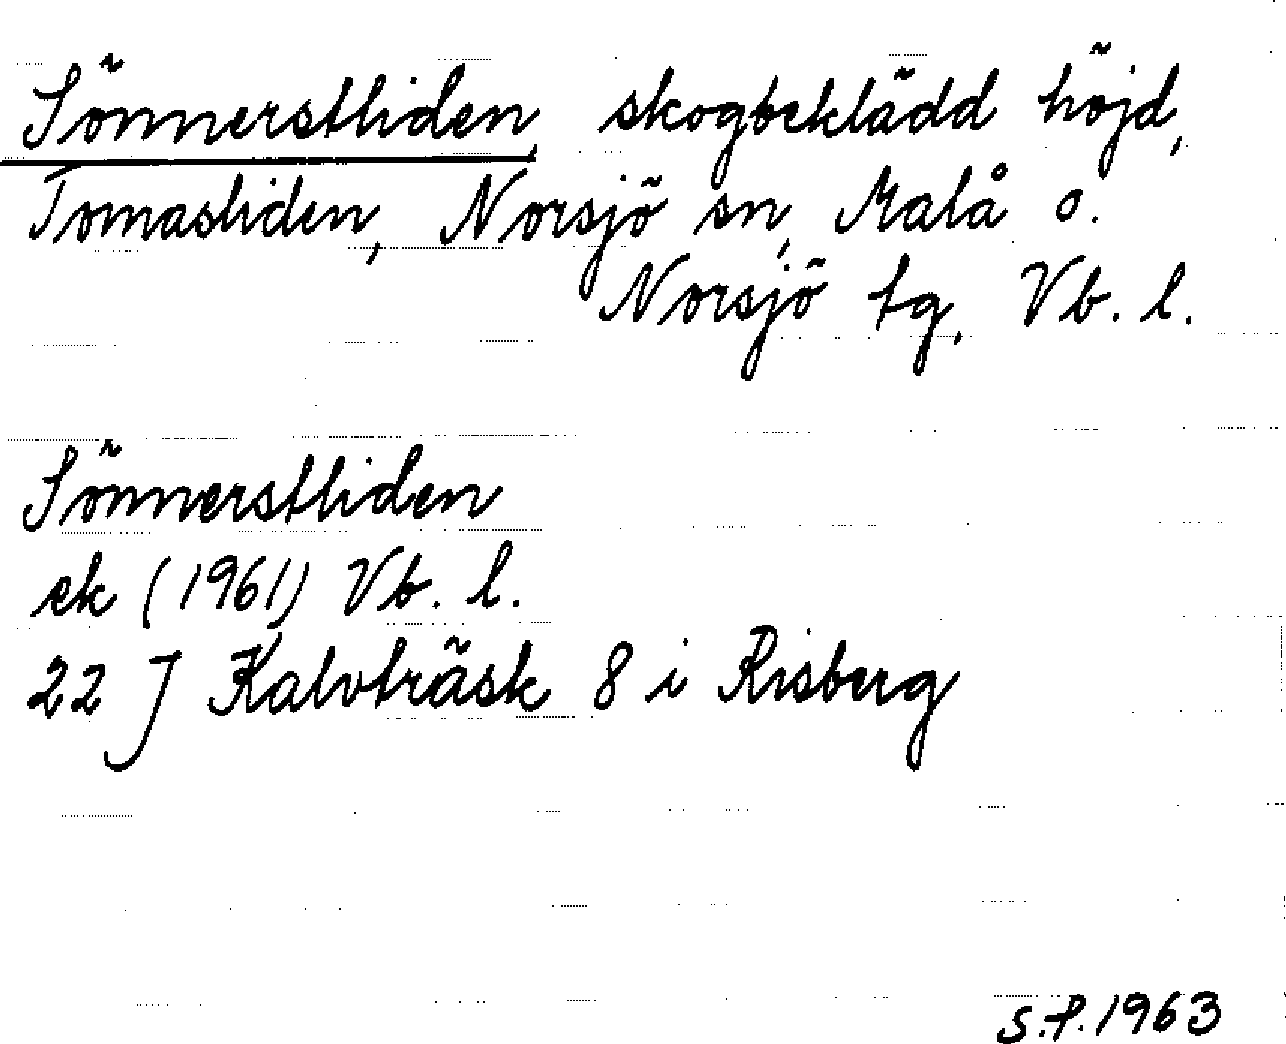 Sönnerstliden, skogbeklädd höjd,
Tomasliden, Norsjö sn, Malå o.
Norsjö tg, Vb. l.
Sönnerstliden
ek (1961) Vb. l.
22 J Kalvträsk 8 i Risberg
S.P. 1963